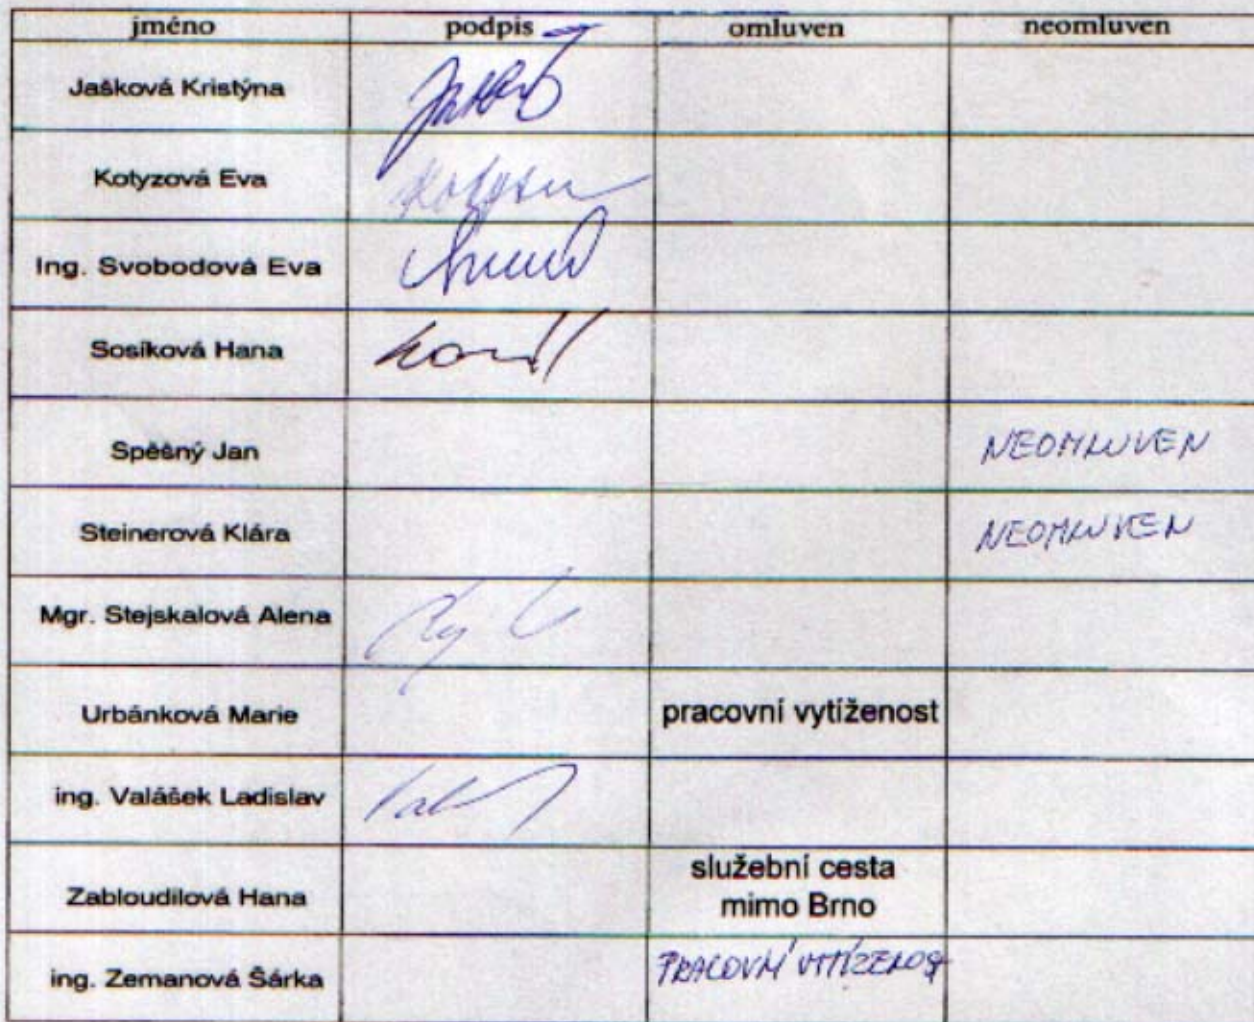 jméno podpis omluven neomluven
Jašková Kristýna
Kotyzová Eva
Ing. Svobodová Eva
Sosíková Hana
Spěšný Jan NEOMLUVEN
Steinerová Klára NEOMLUVEN
Mgr. Stejskalová Alena
Urbánková Marie pracovní vytíženost
ing. Valášek Ladislav
Zabloudilová Hana služební cesta
mimo Brno
ing. Zemanová Šárka PRACOVNÍ VYTÍŽENOST